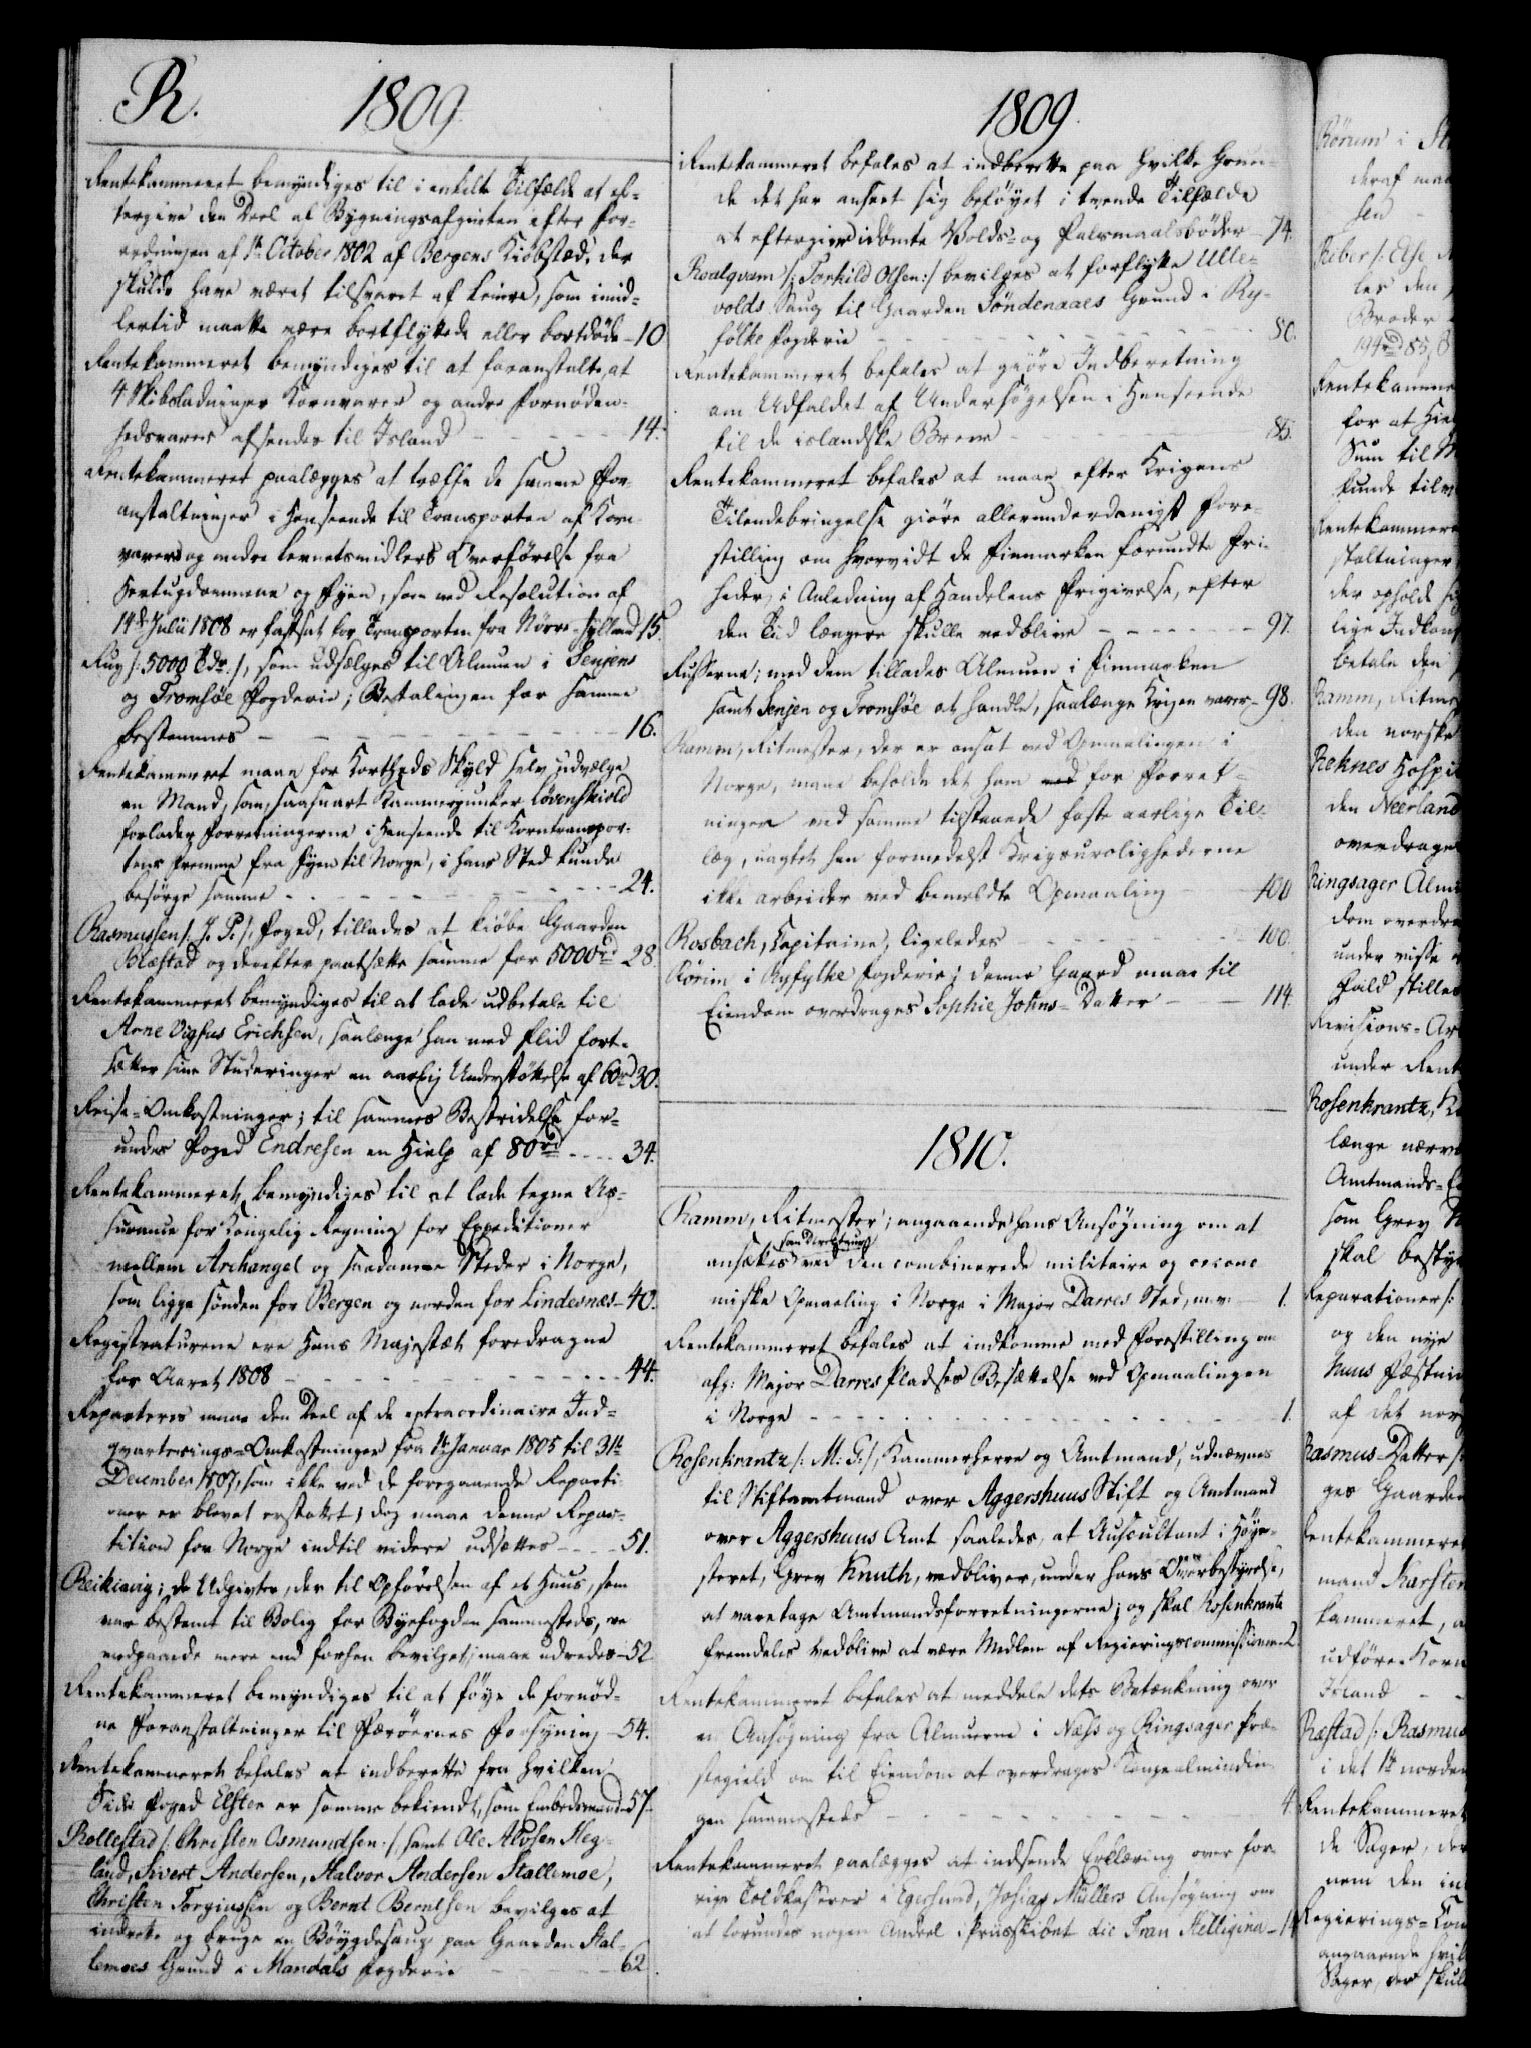 R. 1809
Rentekammeret bemyndiges til i enkelte Tilfælde at ef-
tergive den Deel af Bygningsafgivten efter For-
ordningen af 1te October 1802 af Bergens Kiøbstæd, der
skulde have været tilsvaret af Leiere, som imid-
lertid maatte være bortflyttede eller bortdøde - 10
Rentekammeret bemyndiges til at foranstalte, at
4 Skibsladninger Kornvarer og andre Fornøden-
hedsvarer afsendes til Island - - - - - 14.
Rentekammeret paalægges at træffe de samme For-
anstaltninger i Henseende til Transporten af Korn-
varers og andre Levnetsmidlers Overførelse fra
Hertugdømmene og Fyen, som ved Resolution af
14de Julii 1808 er fastsat for Transporten fra Nørre-Jylland 15.
Rug /: 5000 Tdr. :/, som udsælges til Almuen i Senjens
og Tromsøe Fogderie; Betalingen for samme
bestemmes - - - - - - - - 16.
Rentekammeret maae for Kortheds Skyld selv udvælge
en Mand, som, saasnart Kammerjunker Løvenskiold
forlader Forretningerne i Henseende til Korntranspor-
tens Fremme fra Fyen til Norge, i hans Sted kunde
besørge samme - - - - - - - 24.
Rasmussen /: J. P. :/, Foged, tillades at kiøbe Gaarden
Blæstad og derefter pantsætte samme for 5000rd 28.
Rentekammeret bemyndiges til at lade udbetale til
Arne Vigfus Erichsen, saalænge han med Flid fort-
sætter sine Studeringer en aarlig Understøttelse af 60rd 30.
Reise-Omkostninger; til sammes Bestridelse for-
undes Foged Endresen en Hielp af 80rd - - - - 34.
Rentekammeret bemyndiges til at lade tegne As-
surance for Kongelig Regning for Expeditioner
mellem Archangel og saadanne Steder i Norge,
som ligge sønden for Bergen og norden for Lindesnæs - 40.
Registraturene ere Hans Majestæt foredragne
for Aaret 1808 - - - - - - - - 44.
Reparteres maae den Deel af de extraordinaire Ind-
qvarterings-Omkostninger fra 1te Januar 1805 til 31te
December 1807, som ikke ved de foregaaende Reparti-
oner er blevet erstattet; dog maae denne Repar-
tition for Norge indtil videre udsættes - - - - 51.
Reikiavig; de Udgivter, der til Opførelsen af et Huus, som
var bestemt til Bolig for Byefogden sammesteds, ere
medgaaede mere end forhen bevilget, maae udredes - 52
Rentekammeret bemyndiges til at føye de fornød-
ne Foranstaltninger til Færøernes Forsyning - 54.
Rentekammeret befales at indberette fra hvilken
Side Foged Elster er samme bekiendt, som Embedsmand - 57.
Rollestad /: Christen Osmundsen :/ samt Ole Alvsen Heg-
land, Sivert Andersen, Halvor Andersen Stallemoe,
Christen Torgiussen og Bernt Berntsen bevilges at
indrette og bruge en Bøygdesaug paa Gaarden Stal-
lemoes Grund i Mandals Fogderie - - - - 62
1809.
Rentekammeret befales at indberette paa hvilke Grun-
de det har anseet sig beføyet i tvende Tilfælde
at eftergive idømte Volds- og Falsmaalsbøder - 74.
Roalqvam /: Torkild Olsen :/ bevilges at forflytte Ulle-
volds Saug til Gaarden Søndenaaes Grund i Ry-
fölke Fogderie - - - - - - - 80.
Rentekammeret befales at giøre Indberetning
om Udfaldet af Undersøgelsen i Henseende
til de islandske Breve - - - - - 85.
Rentekammeret befales at maae efter Krigens
Tilendebringelse giøre allerunderdanigst Fore-
stilling om hvorvidt de Finmarken forundte Fri-
heder, i Anledning af Handelens Frigivelse, efter
den Tid længere skulle vedblive - - - - - - 97.
Russerne; med dem tillades Almuen i Finmarken
samt Senjen og Tromsøe at handle, saalænge Krigen varer - 98.
Ramm, Ritmester, der er ansat ved Opmaalingen i
Norge, maae beholde det ham ved for Forret-
ningen ved samme tilstaaede faste aarlige Til-
læg, uagtet han formedelst Krigsurolighederne
ikke arbeider ved bemeldte Opmaaling - 100
Rosbach, Capitaine, ligeledes - - - - - 100.
Rörim i Ryfylke Fogderie; denne Gaard maae til
Eiendom overdrages Sophie Johns-Datter - - - 114.
1810.
Ramm, Ritmester; angaaende hans Ansøgning om at
som Directeur
ansættes ved den combinerede militaire og oecono-
miske Opmaaling i Norge i Major Darres Sted, m.v. - 1.
Rentekammeret befales at indkomme med Forestilling om
afg: Major Darres Pladses Besættelse ved Opmaalingen
i Norge - - - - - - - - - - 1.
Rosenkrantz /: M: G: :/, Kammerherre og Amtmand, udnævnes
til Stiftamtmand over Aggershuus Stift og Amtmand
over Aggershuus Amt saaledes, at Auscultant i Høye-
steret, Grev Knuth, vedbliver, under hans Overbestyrelse,
at varetage Amtmandsforretningerne; og skal Rosenkrantz
fremdeles vedblive at være Medlem af Regieringscommissionen - 2.
Rentekammeret befales at meddele dets Betænkning over
en Ansøgning fra Almuerne i Næss og Ringsager Præ-
stegield om til Eiendom at overdrages Kongealmindin-
gen sammesteds - - - - - - - 4.
Rentekammeret paalægges at indsende Erklæring over for-
rige Toldkasserer i Egersund, Josias Müllers Ansøgning om
at forundes nogen Andeel i Priisskibet die Frau Helligina - 14
Rörum i
deraf maa
sen
Riber /: Else
les den
Broder
194rd 85
Rentekamme
for at
Sum til
kunde tilv
Rentekammere
staltninger
der opholde sig
lige Indkom
betale den
Ramm, Ritme
den norske
Reknes Hospit
den Neerland
overdrages
Ringsager Almi
dom overdra
under visse
Fald stilles
Revisions-Ar
under Rent
Rosenkrantz, K
længe nærv
Amtmands-E
som Grev
skal bestyr
Reparationer /:
og den nye
huus Fæstnin
af det nor
Rasmus-Datter /:
ges Gaarden
Rentekammeret
mand Karsten
kammeret, a
udføre Korn
Island - -
Ræstad /: Rasmus
i det 1te norden
Rentekammeret
de Sager, der
nem den in
Regierings-Com
angaaende hvil
Sager, der skul